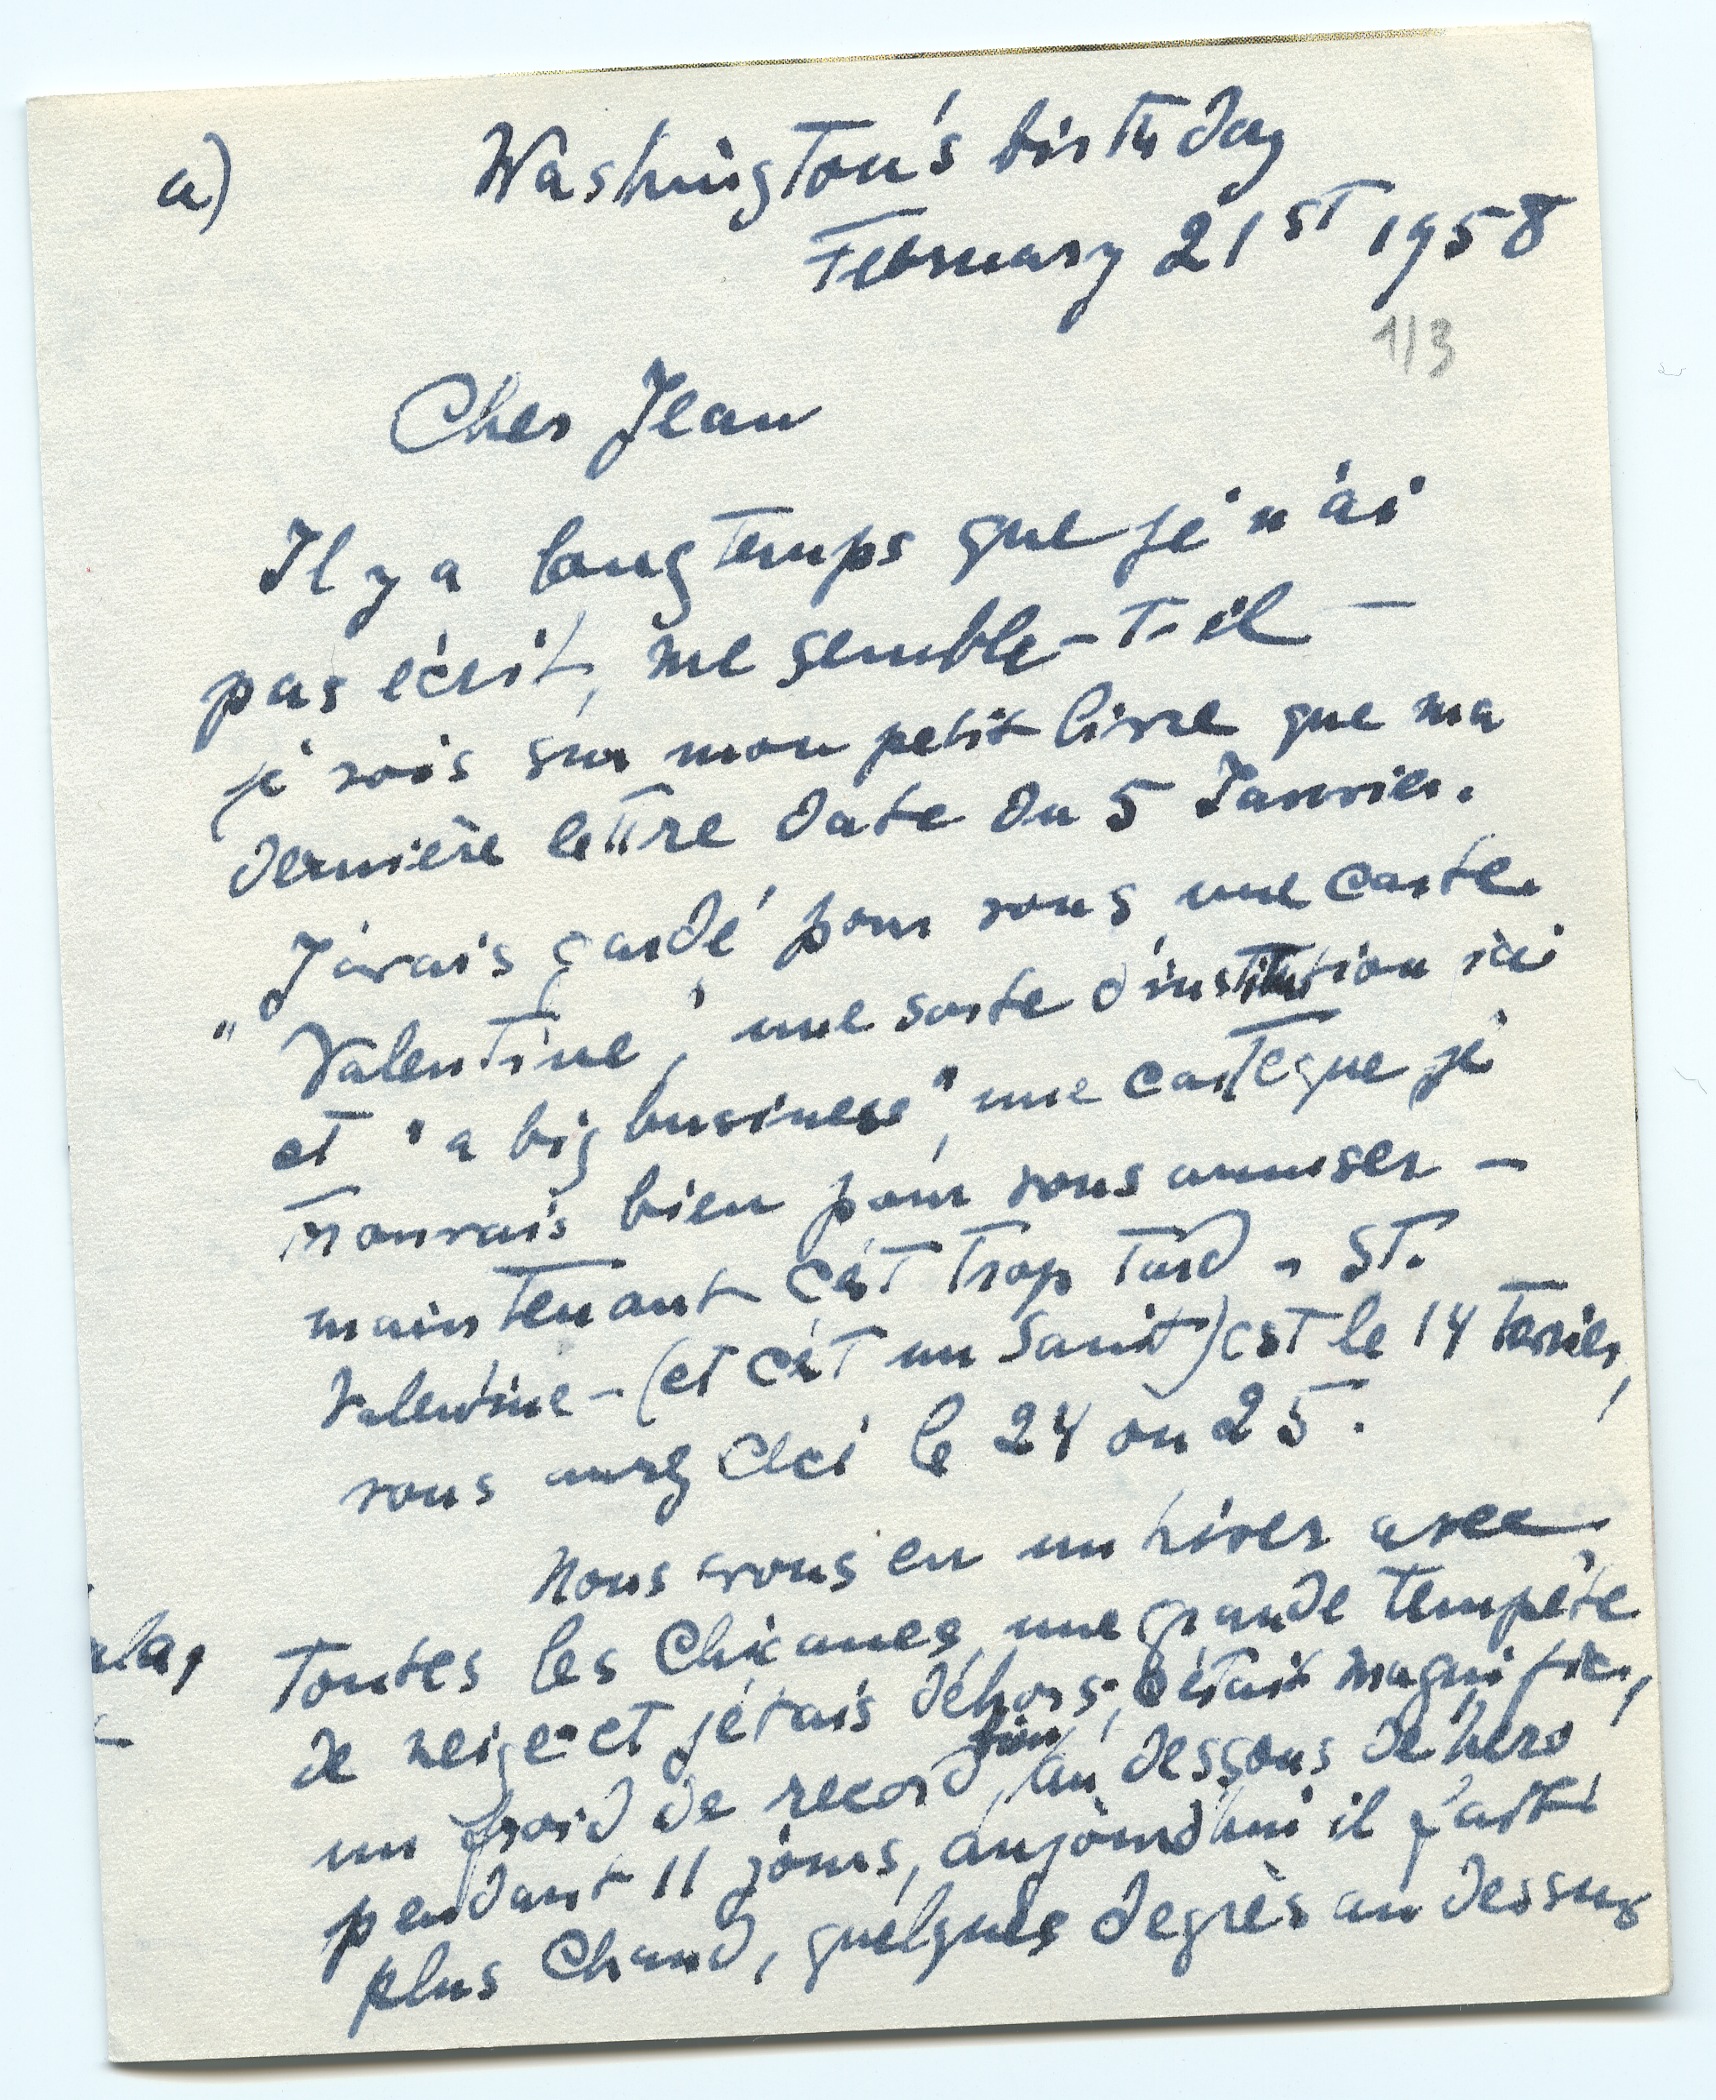 a)
Washington's birthday
February 21ST 1958
1/3
Cher Jean
Il y a longtemps que je n'ai
pas écrit, me semble-t-il —
je vois sur mon petit livre que ma
dernière lettre date du 5 Janvier.
J'avais gardé pour vous une carte
"Valentine", une sorte d'institution ici
et "a big business", une carte que je
trouvais bien pour vous amuser —
maintenant c'est trop tard - St.
Valentine - (et c'est un Saint) est le 14 fevrier,
vous aurez ceci le 24 ou 25.
Nous avons eu un hiver avec
toutes les chicanes, une grande tempête
de neige et j'étais déhors, c'était magnific,
un froid de record, au dessous de hero
pendant 11 jours, aujourd'hui il fait
plus chaud, quelques degrès au dessus
ula,